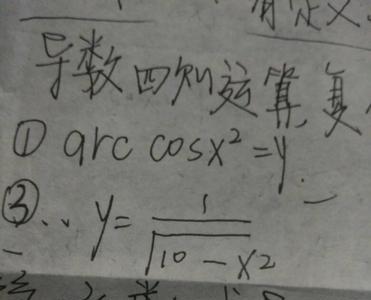 有定义.
导数四则运算,复
① arc cos x² = y.
③.. y = 1/√(10 - x²)